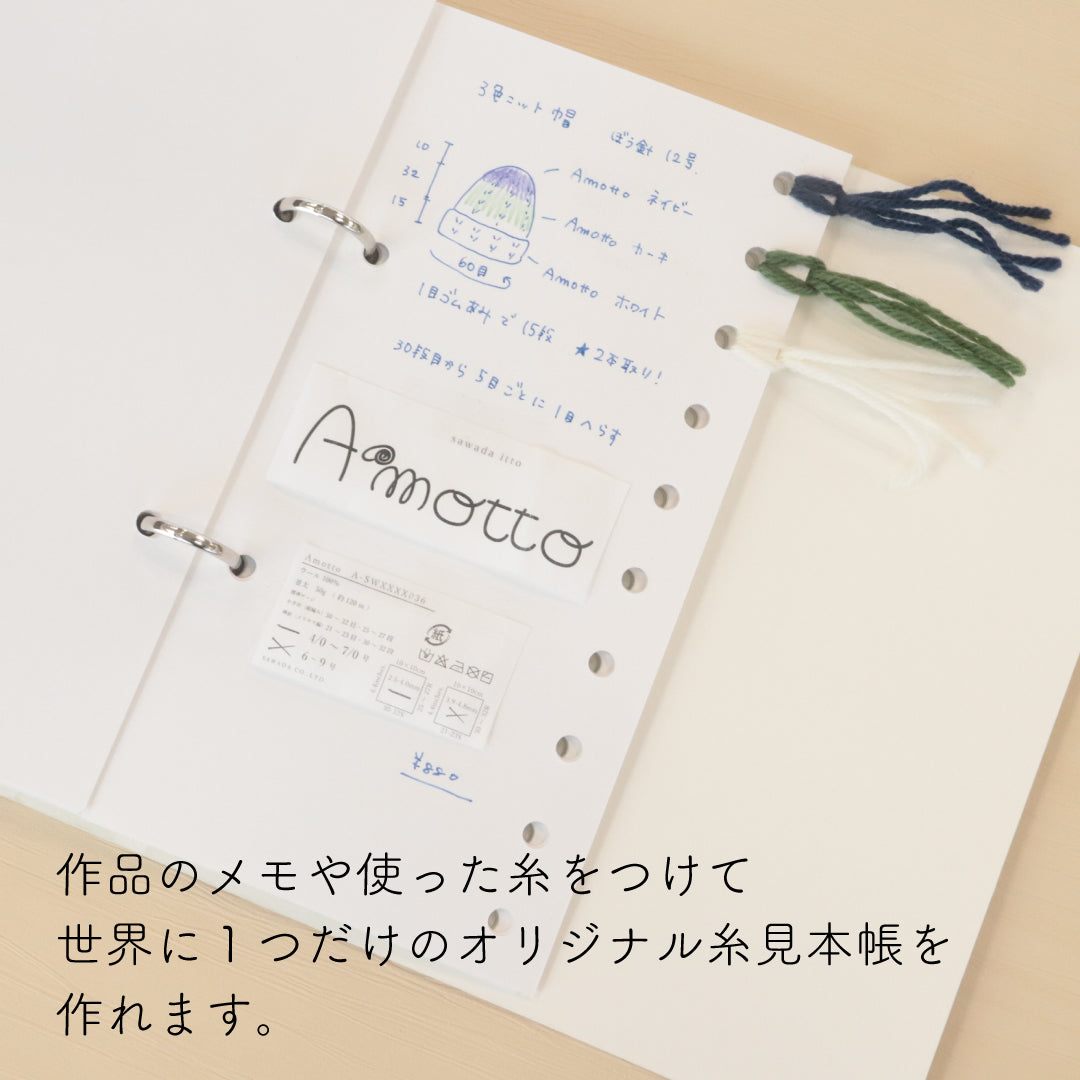 3色ニット帽 ぼう針 12号.
10
32
15
Amotto ネイビー
Amotto カーキ
Amotto ホワイト
60目
1目ゴムあみで15段 ★2本取り!
30段目から5目ごとに1目へらす
sawada itto
Amotto
Amotto A-SWXXXX036
ウール 100%
50g (約120m)
4/0〜7/0号
6-9号
SAWADA CO.,LTD.
紙
10×10cm
10×10cm
¥880
作品のメモや使った糸をつけて
世界に1つだけのオリジナル糸見本帳を
作れます。